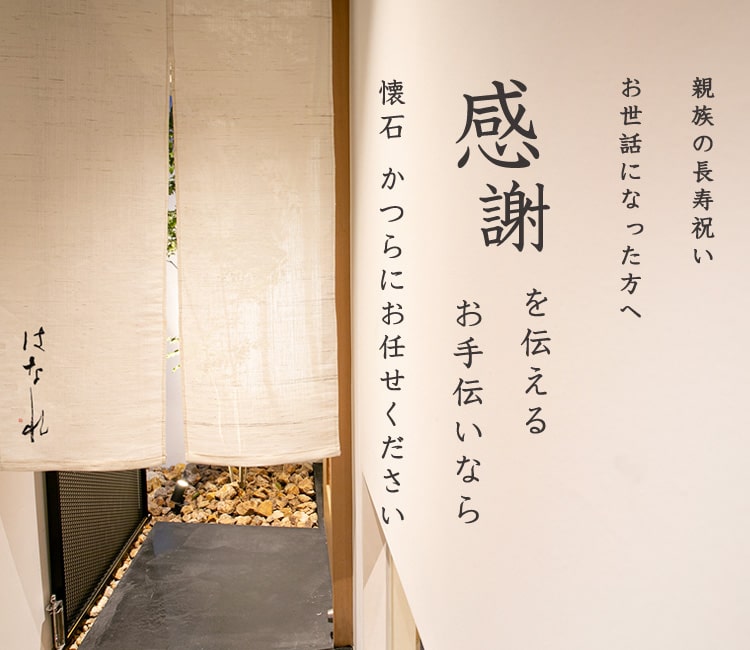 親族の長寿祝い
お世話になった方へ
感謝を伝える
お手伝いなら
懐石 かつらにお任せください
はなれ